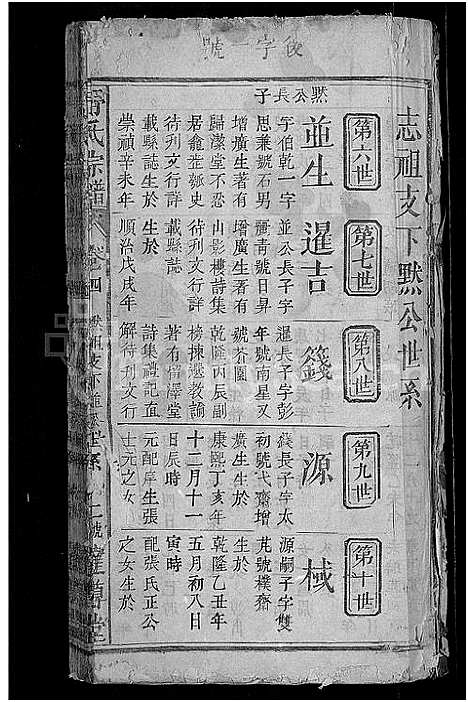 後字一號
志祖支下默公世系
第六世
第七世
第八世
第九世
第十世
默公長子
並生
字伯乾一字
思兼號石男
增廣生著有
歸漾堂不忘
居龕瓻史
待刋文行詳
載縣誌生於
崇禎辛未年
暹吉
並公長子字
麗青號日昇
增廣生著有
山影樓詩集
待刋文行詳
載縣誌
生於
順治戊戌年
籛
暹長子字彭
年號南星又
號芥園
乾隆丙辰副
榜揀選教諭
著有榴澤堂
詩集禮記直
解待刋文行
源
籛長子字太
初號弌齋增
廣生生於
康熙丁亥年
十二月十一
日辰時
元配庠生張
士元之女
棫
源嗣子字雙
芃號樸齋
生於
乾隆乙丑年
五月初八日
寅時
配張氏正公
之女生於
氏宗譜
卷四
默祖支下
世系